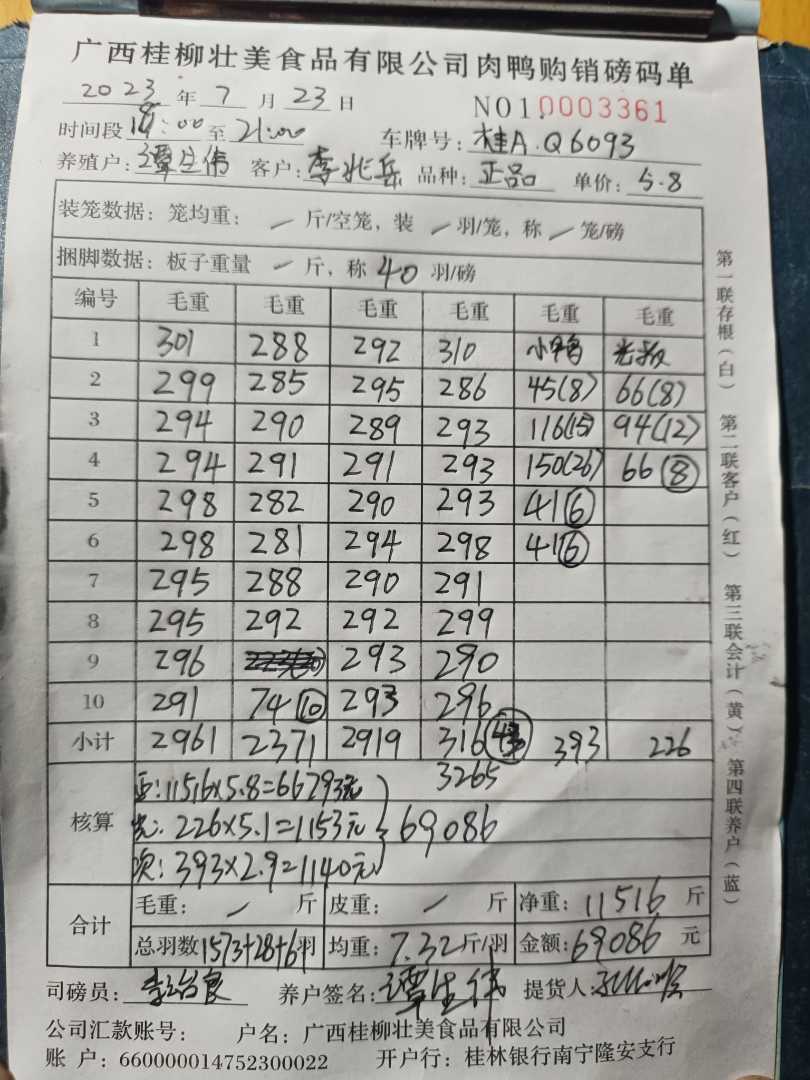 广西桂柳壮美食品有限公司肉鸭购销磅码单
2023年7月23日 NO1.0003361
时间段 :00至21:00 车牌号:桂A.Q6093
养殖户:谭生伟 客户:李兆岳 品种:正品 单价:5.8
装笼数据:笼均重:/斤/空笼,装/羽/笼,称/笼/磅
捆脚数据:板子重量/斤,称40羽/磅
编号 毛重 毛重 毛重 毛重 毛重 毛重
1 301 288 292 310 小鸭
2 299 285 295 286 45(8) 66(8)
3 294 290 289 293 116(15) 94(12)
4 294 291 291 293 150(26) 66(8)
5 298 282 290 293 41(6)
6 298 281 294 298 41(6)
7 295 288 290 291
8 295 292 292 299
9 296 293 290
10 291 74(10) 293 296
小计 2961 2371 2919 316 393 226
3265
核算 正:11516×5.8=66793元
光:226×5.1=1153元 69086
次:393×2.9=1140元
合计 毛重:/斤 皮重:/斤 净重:11516斤
总羽数1573+28+61羽 均重:7.32斤/羽 金额:69086元
司磅员: 养户签名:谭生伟 提货人:
公司汇款账号: 户名:广西桂柳壮美食品有限公司
账 户:660000014752300022 开户行:桂林银行南宁隆安支行
第一联存根(白) 第二联客户(红) 第三联会计(黄) 第四联养户(蓝)